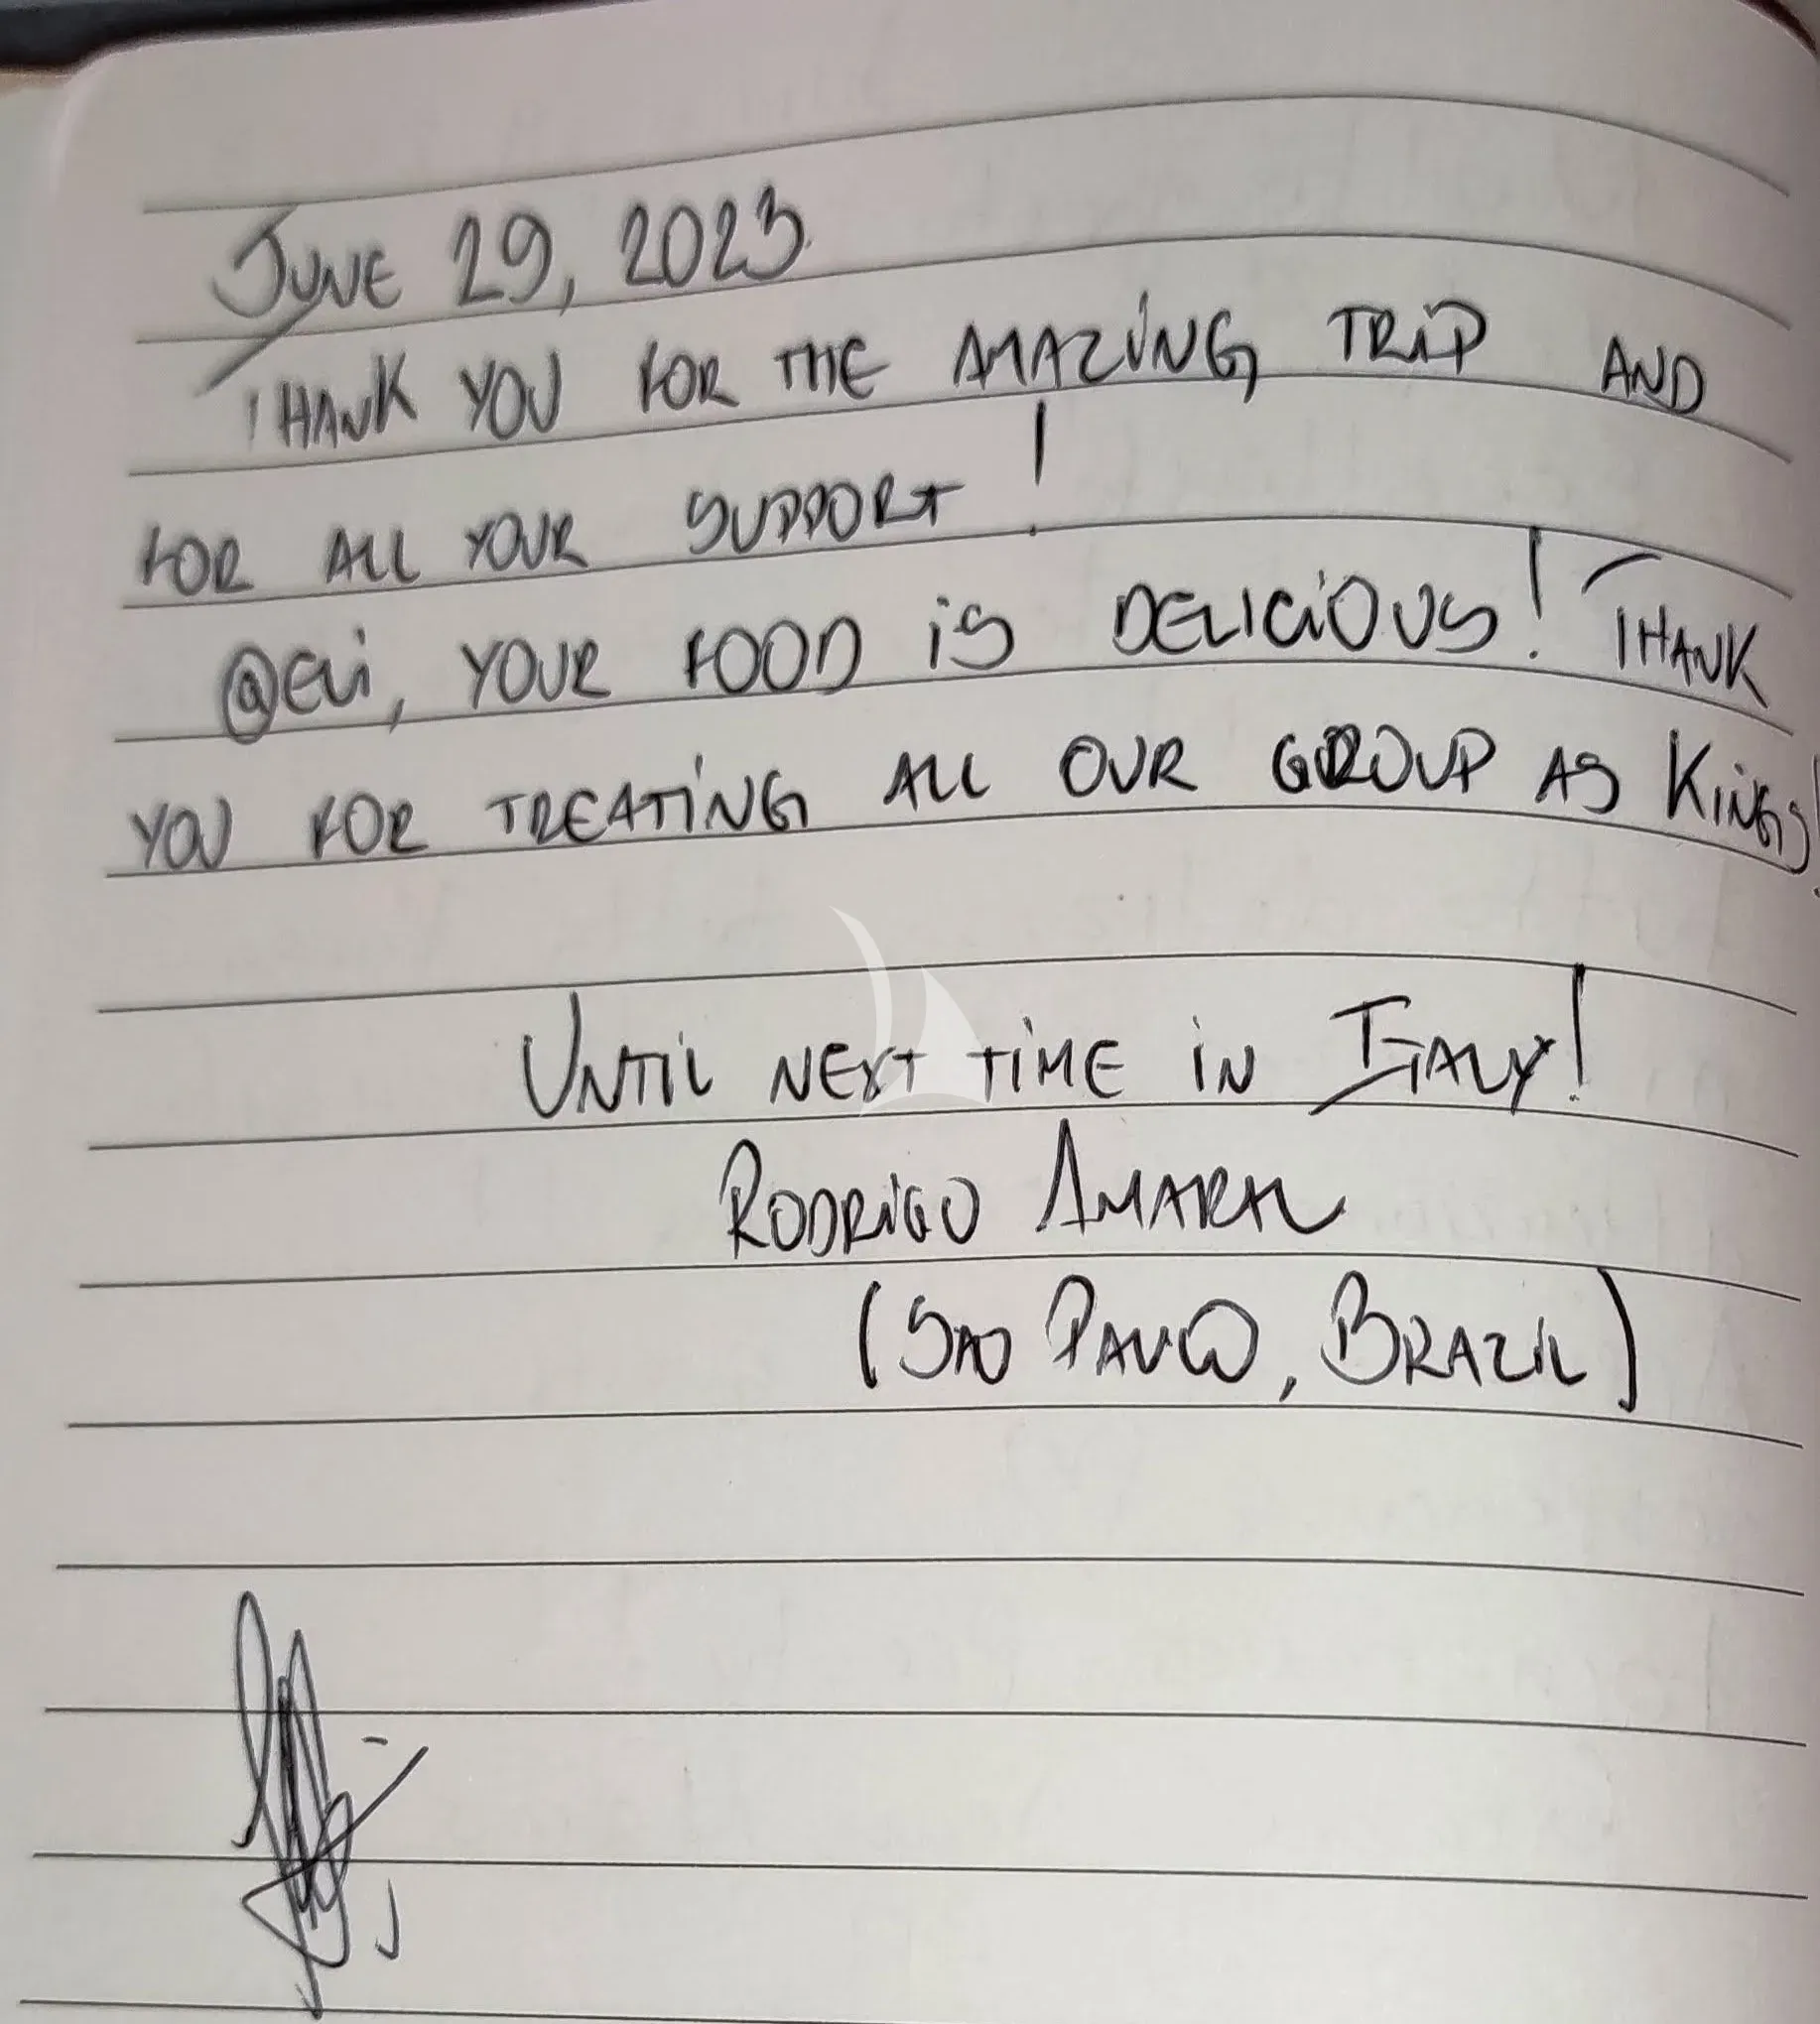 JUNE 29, 2023
THANK YOU FOR THE AMAZING TRIP AND
FOR ALL YOUR SUPPORT!
@EVI, YOUR FOOD IS DELICIOUS! THANK
YOU FOR TREATING ALL OUR GROUP AS KINGS!
UNTIL NEXT TIME IN ITALY!
RODRIGO AMARAL
(SAO PAULO, BRAZIL)